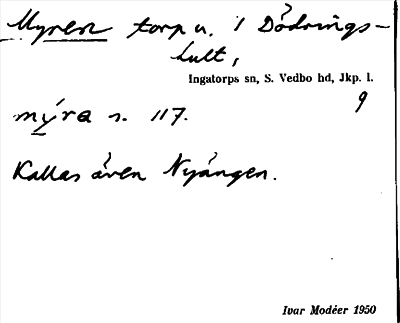 Myren torp u. i Dödrings-
hult,
Ingatorps sn, S. Vedbo hd, Jkp. l.
9
myra s. 117.
Kallas även Nyängen.
Ivar Modéer 1950